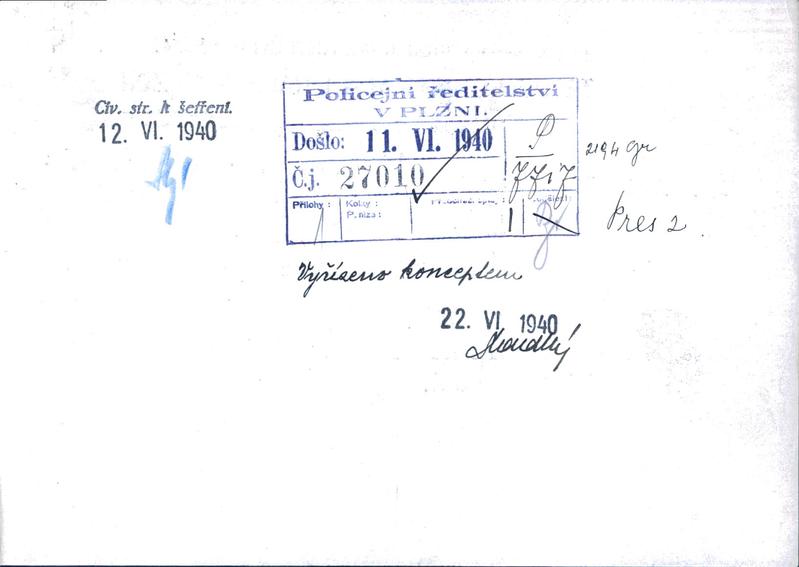 Civ. str. k šetření.
12. VI. 1940
Policejní ředitelství
V PLZNI.
Došlo: 11. VI. 1940
Č.j. 27010
Přílohy:
Kolky:
P. mza:
1
P
2194 gr
Pres 2.
Vyřízeno konceptem
22. VI. 1940